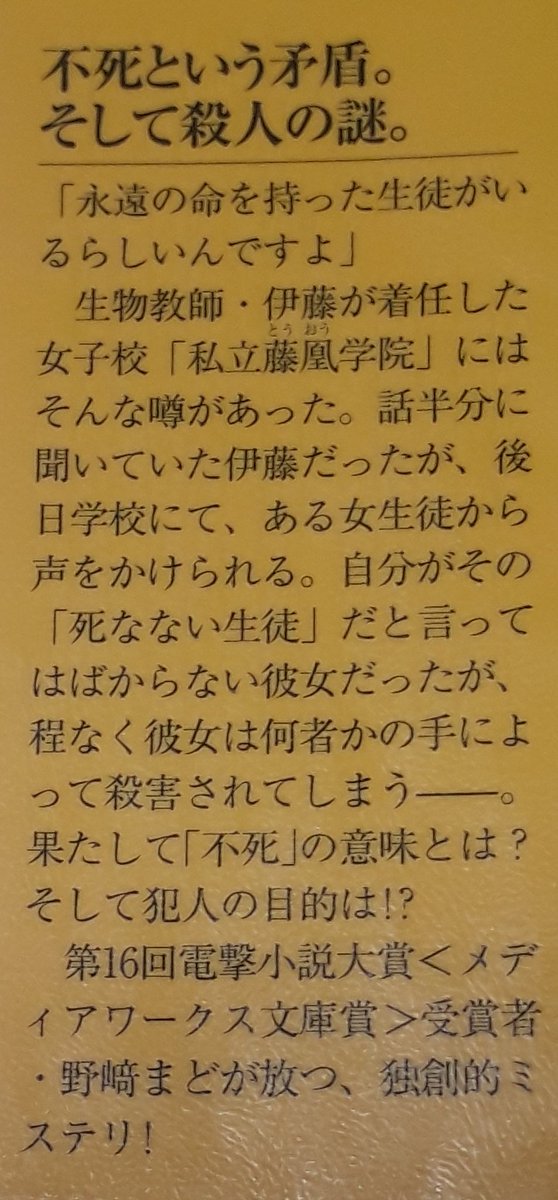 不死という矛盾。
そして殺人の謎。
「永遠の命を持った生徒がい
るらしいんですよ」
生物教師・伊藤が着任した
とう おう
女子校「私立藤凰学院」には
そんな噂があった。話半分に
聞いていた伊藤だったが、後
日学校にて、ある女生徒から
声をかけられる。自分がその
「死なない生徒」だと言って
はばからない彼女だったが、
程なく彼女は何者かの手によ
って殺害されてしまう——。
果たして「不死」の意味とは？
そして犯人の目的は!?
第16回電撃小説大賞＜メデ
ィアワークス文庫賞＞受賞者
・野﨑まどが放つ、独創的ミ
ステリ！